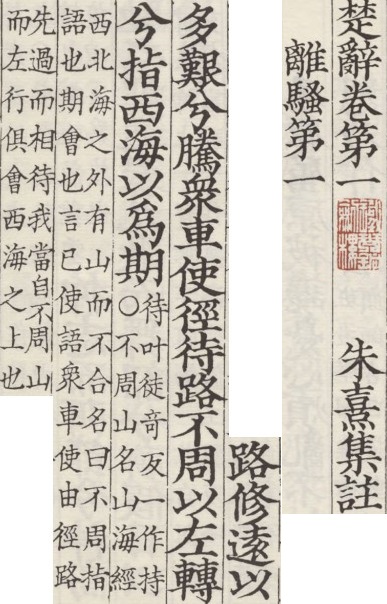 楚辭卷第一
朱熹集註
離騷第一
路修遠以
多艱兮騰衆車使徑待路不周以左轉
兮指西海以爲期
待叶徒奇反一作持
○不周山名山海經
西北海之外有山而不合名曰不周指
語也期會也言己使語衆車使由徑路
先過而相待我當自不周山
而左行俱會西海之上也